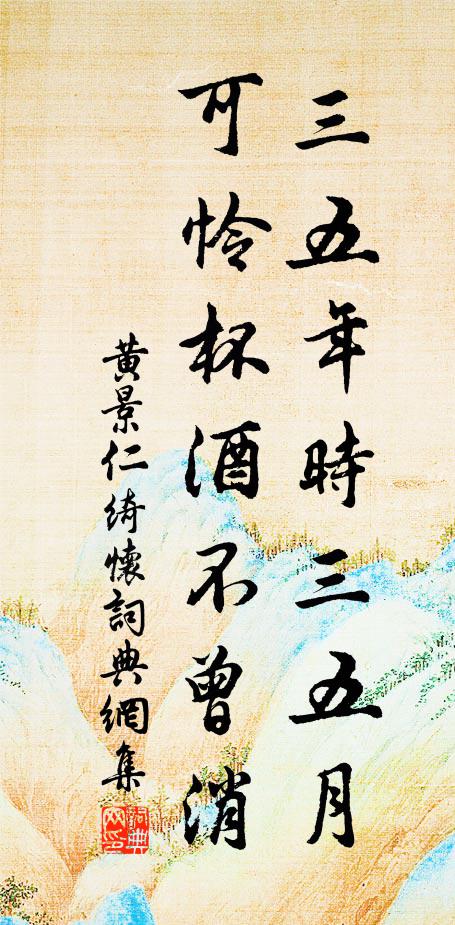 三五年時三五月
可怜杯酒不曾消
黃景仁綺懷詞典網集
詞典
网印